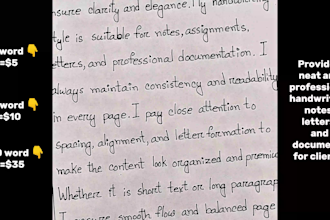 nsure clarity and elegance. My handwriting
tyle is suitable for notes, assignments,
etters, and professional documentation. I
always maintain consistency and readability
in every page. I pay close attention to
spacing, alignment, and letter formation to
make the content look organized and premiu
Whether it is short text or long paragrap
I ensure smooth flow and balanced page
word 👇
=$5
word 👇
=$10
0 word 👇
=$35
Provid
neat a
professio
handwri
notes
letter
and
docume
for clien